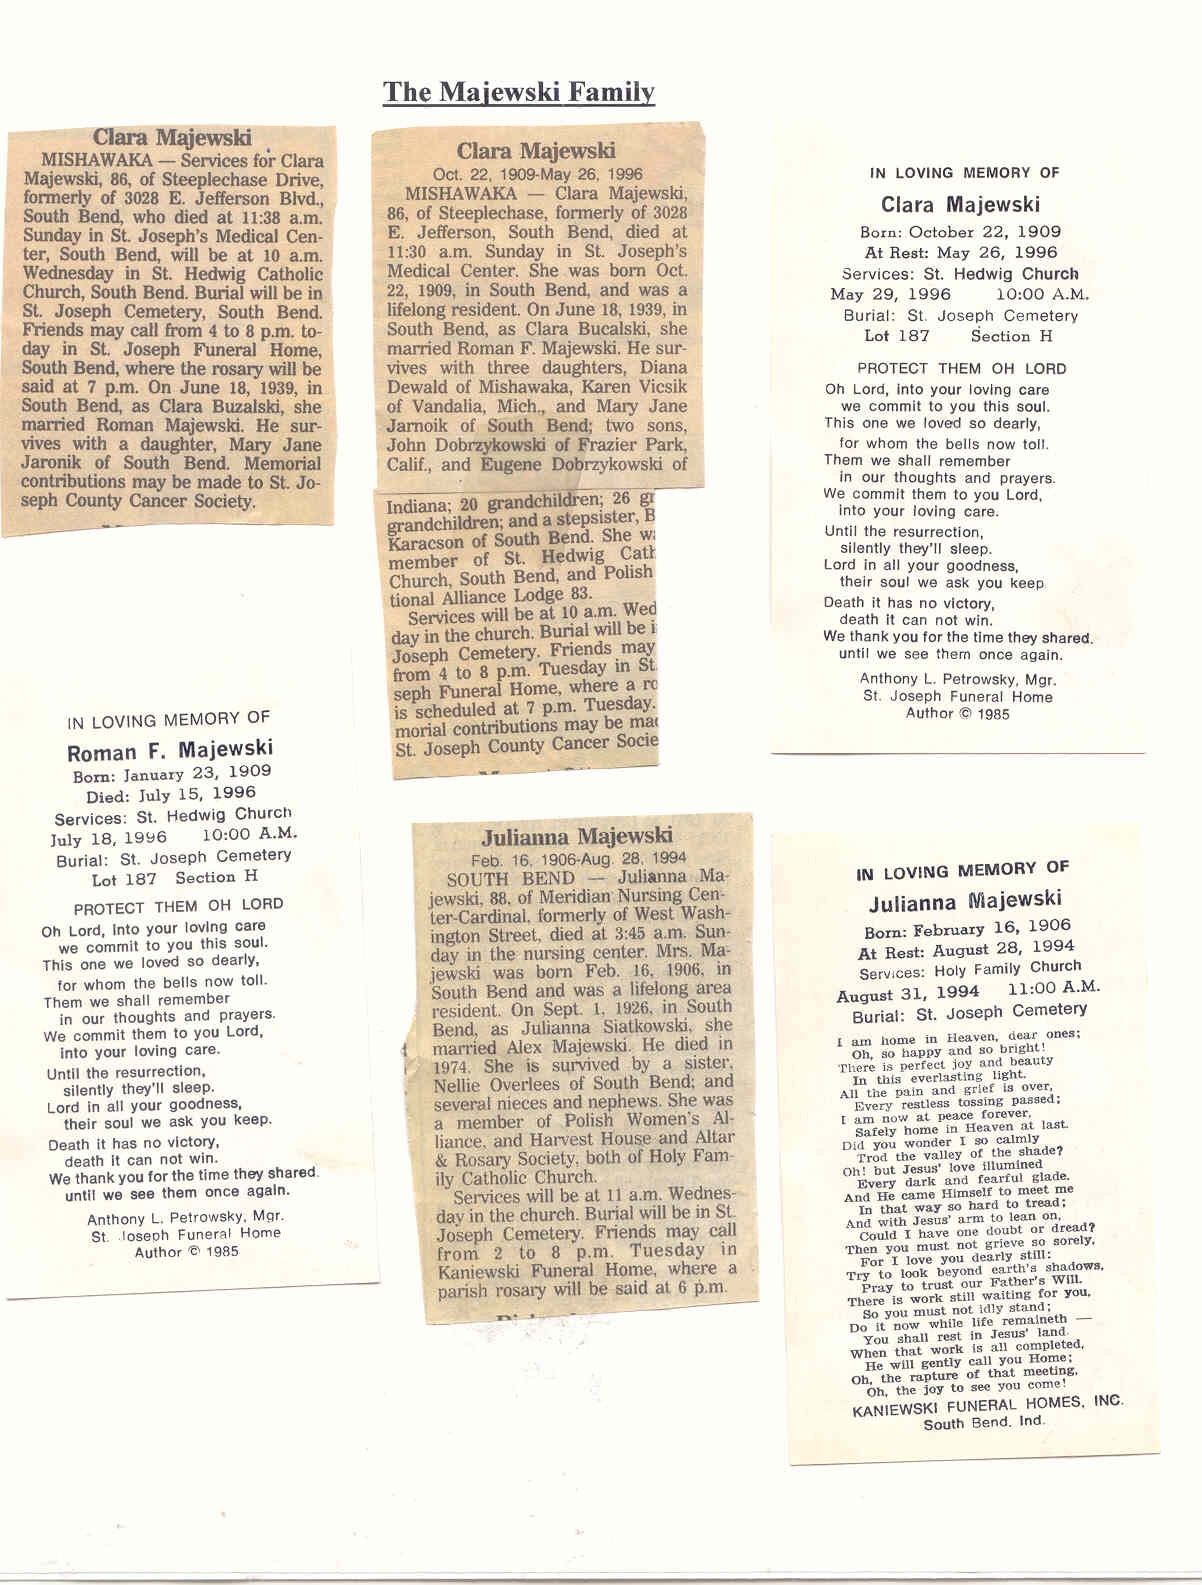 The Majewski Family
Clara Majewski
MISHAWAKA — Services for Clara
Majewski, 86, of Steeplechase Drive,
formerly of 3028 E. Jefferson Blvd.,
South Bend, who died at 11:38 a.m.
Sunday in St. Joseph's Medical Cen-
ter, South Bend, will be at 10 a.m.
Wednesday in St. Hedwig Catholic
Church, South Bend. Burial will be in
St. Joseph Cemetery, South Bend.
Friends may call from 4 to 8 p.m. to-
day in St. Joseph Funeral Home,
South Bend, where the rosary will be
said at 7 p.m. On June 18, 1939, in
South Bend, as Clara Buzalski, she
married Roman Majewski. He sur-
vives with a daughter, Mary Jane
Jaronik of South Bend. Memorial
contributions may be made to St. Jo-
seph County Cancer Society.
Clara Majewski
Oct. 22, 1909-May 26, 1996
MISHAWAKA — Clara Majewski,
86, of Steeplechase, formerly of 3028
E. Jefferson, South Bend, died at
11:30 a.m. Sunday in St. Joseph's
Medical Center. She was born Oct.
22, 1909, in South Bend, and was a
lifelong resident. On June 18, 1939, in
South Bend, as Clara Bucalski, she
married Roman F. Majewski. He sur-
vives with three daughters, Diana
Dewald of Mishawaka, Karen Vicsik
of Vandalia, Mich., and Mary Jane
Jarnoik of South Bend; two sons,
John Dobrzykowski of Frazier Park,
Calif., and Eugene Dobrzykowski of
Indiana; 20 grandchildren; 26 gr
grandchildren; and a stepsister, B
Karacson of South Bend. She w
member of St. Hedwig Cath
Church, South Bend, and Polish
tional Alliance Lodge 83.
Services will be at 10 a.m. Wed
day in the church. Burial will be i
Joseph Cemetery. Friends may
from 4 to 8 p.m. Tuesday in St.
seph Funeral Home, where a ro
is scheduled at 7 p.m. Tuesday.
morial contributions may be mad
St. Joseph County Cancer Socie
IN LOVING MEMORY OF
Clara Majewski
Born: October 22, 1909
At Rest: May 26, 1996
Services: St. Hedwig Church
May 29, 1996 10:00 A.M.
Burial: St. Joseph Cemetery
Lot 187 Section H
PROTECT THEM OH LORD
Oh Lord, into your loving care
we commit to you this soul.
This one we loved so dearly,
for whom the bells now toll.
Them we shall remember
in our thoughts and prayers.
We commit them to you Lord,
into your loving care.
Until the resurrection,
silently they'll sleep.
Lord in all your goodness,
their soul we ask you keep
Death it has no victory,
death it can not win.
We thank you for the time they shared.
until we see them once again.
Anthony L. Petrowsky, Mgr.
St. Joseph Funeral Home
Author © 1985
IN LOVING MEMORY OF
Roman F. Majewski
Born: January 23, 1909
Died: July 15, 1996
Services: St. Hedwig Church
July 18, 1996 10:00 A.M.
Burial: St. Joseph Cemetery
Lot 187 Section H
PROTECT THEM OH LORD
Oh Lord, into your loving care
we commit to you this soul.
This one we loved so dearly,
for whom the bells now toll.
Them we shall remember
in our thoughts and prayers.
We commit them to you Lord,
into your loving care.
Until the resurrection,
silently they'll sleep.
Lord in all your goodness,
their soul we ask you keep.
Death it has no victory,
death it can not win.
We thank you for the time they shared.
until we see them once again.
Anthony L. Petrowsky, Mgr.
St. Joseph Funeral Home
Author © 1985
Julianna Majewski
Feb. 16, 1906-Aug. 28, 1994
SOUTH BEND — Julianna Ma-
jewski, 88, of Meridian Nursing Cen-
ter-Cardinal, formerly of West Wash-
ington Street, died at 3:45 a.m. Sun-
day in the nursing center. Mrs. Ma-
jewski was born Feb. 16, 1906, in
South Bend and was a lifelong area
resident. On Sept. 1, 1926, in South
Bend, as Julianna Siatkowski, she
married Alex Majewski. He died in
1974. She is survived by a sister,
Nellie Overlees of South Bend; and
several nieces and nephews. She was
a member of Polish Women's Al-
liance, and Harvest House and Altar
& Rosary Society, both of Holy Fam-
ily Catholic Church.
Services will be at 11 a.m. Wednes-
day in the church. Burial will be in St.
Joseph Cemetery. Friends may call
from 2 to 8 p.m. Tuesday in
Kaniewski Funeral Home, where a
parish rosary will be said at 6 p.m.
IN LOVING MEMORY OF
Julianna Majewski
Born: February 16, 1906
At Rest: August 28, 1994
Services: Holy Family Church
August 31, 1994 11:00 A.M.
Burial: St. Joseph Cemetery
I am home in Heaven, dear ones;
Oh, so happy and so bright!
There is perfect joy and beauty
In this everlasting light.
All the pain and grief is over,
Every restless tossing passed;
I am now at peace forever,
Safely home in Heaven at last.
Did you wonder I so calmly
Trod the valley of the shade?
Oh! but Jesus' love illumined
Every dark and fearful glade.
And He came Himself to meet me
In that way so hard to tread;
And with Jesus' arm to lean on,
Could I have one doubt or dread?
Then you must not grieve so sorely,
For I love you dearly still:
Try to look beyond earth's shadows,
Pray to trust our Father's Will.
There is work still waiting for you,
So you must not idly stand;
Do it now while life remaineth —
You shall rest in Jesus' land.
When that work is all completed,
He will gently call you Home;
Oh, the rapture of that meeting,
Oh, the joy to see you come!
KANIEWSKI FUNERAL HOMES, INC.
South Bend, Ind.